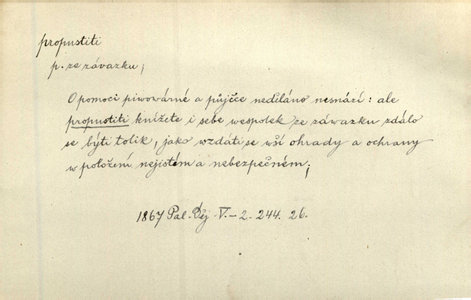 propustiti
p. ze závazku;
O pomoci piwovárné a půjčce nedíláno nesnází: ale
propustiti knížete i sebe wespolek ze záwazku zdálo
se býti tolik, jako wzdáti se wší ohrady a ochrany
w položení nejistém a nebezpečném;
1867 Pal. Děj. V.-2. 244. 26.